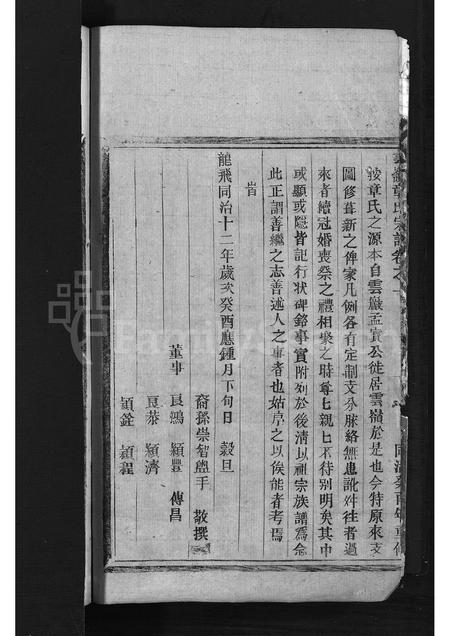 按章氏之源本自雲嚴孟實公徙居雲嶺於是也今特原來支
圖修葺新之俾家凡例各有定制支分脉絡無患訛舛往者過
來者續冠婚喪祭之禮相聚之時尊七親七不待別明矣其中
或顯或隱皆記行狀碑銘事實附列於後清以祖宗族譜爲念
此正謂善繼之志善述人之事者也姑序之以俟能者考焉
旹
龍飛同治十二年歲次癸酉應鍾月下旬日 穀旦
裔孫崇智盥手 敬撰
董事 良鴻 穎豐 傳昌
良恭 穎濟
穎銓 穎程